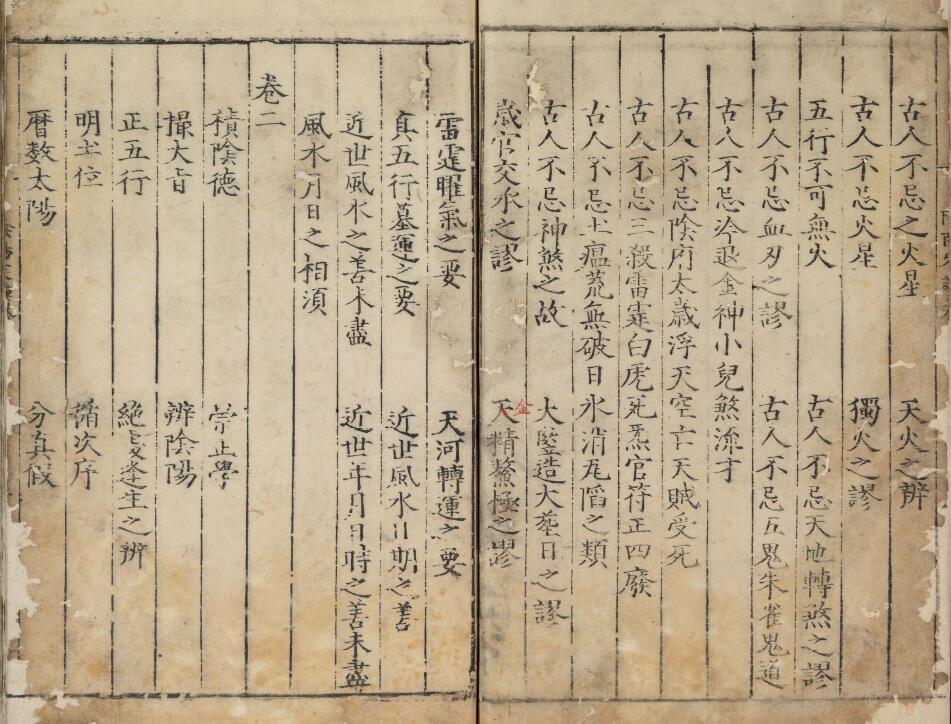 古人不忌之火星　天火之辨
古人不忌火星　獨火之謬
五行不可無火　古人不忌天地轉煞之謬
古人不忌血刃之謬　古人不忌五鬼朱雀鬼道
古人不忌冷退金神小兒煞流才
古人不忌陰府太歲浮天空亡天賊受死
古人不忌三殺雷霆白虎死炁官符正四廢
古人不忌土瘟荒無破日氷消瓦陷之類
古人不忌神煞之故　大竪造大葬日之謬
歲官交承之謬　天金精鰲極之謬
雷霆曜氣之要　天河轉運之要
真五行墓運之要　近世風水日期之善
近世風水之善未盡　近世年月日時之善未盡
風水月日之相須
卷二
積陰德　崇正學
撮大旨　辨陰陽
正五行　絶處逢生之辨
明生位　循次序
曆数太陽　分真假